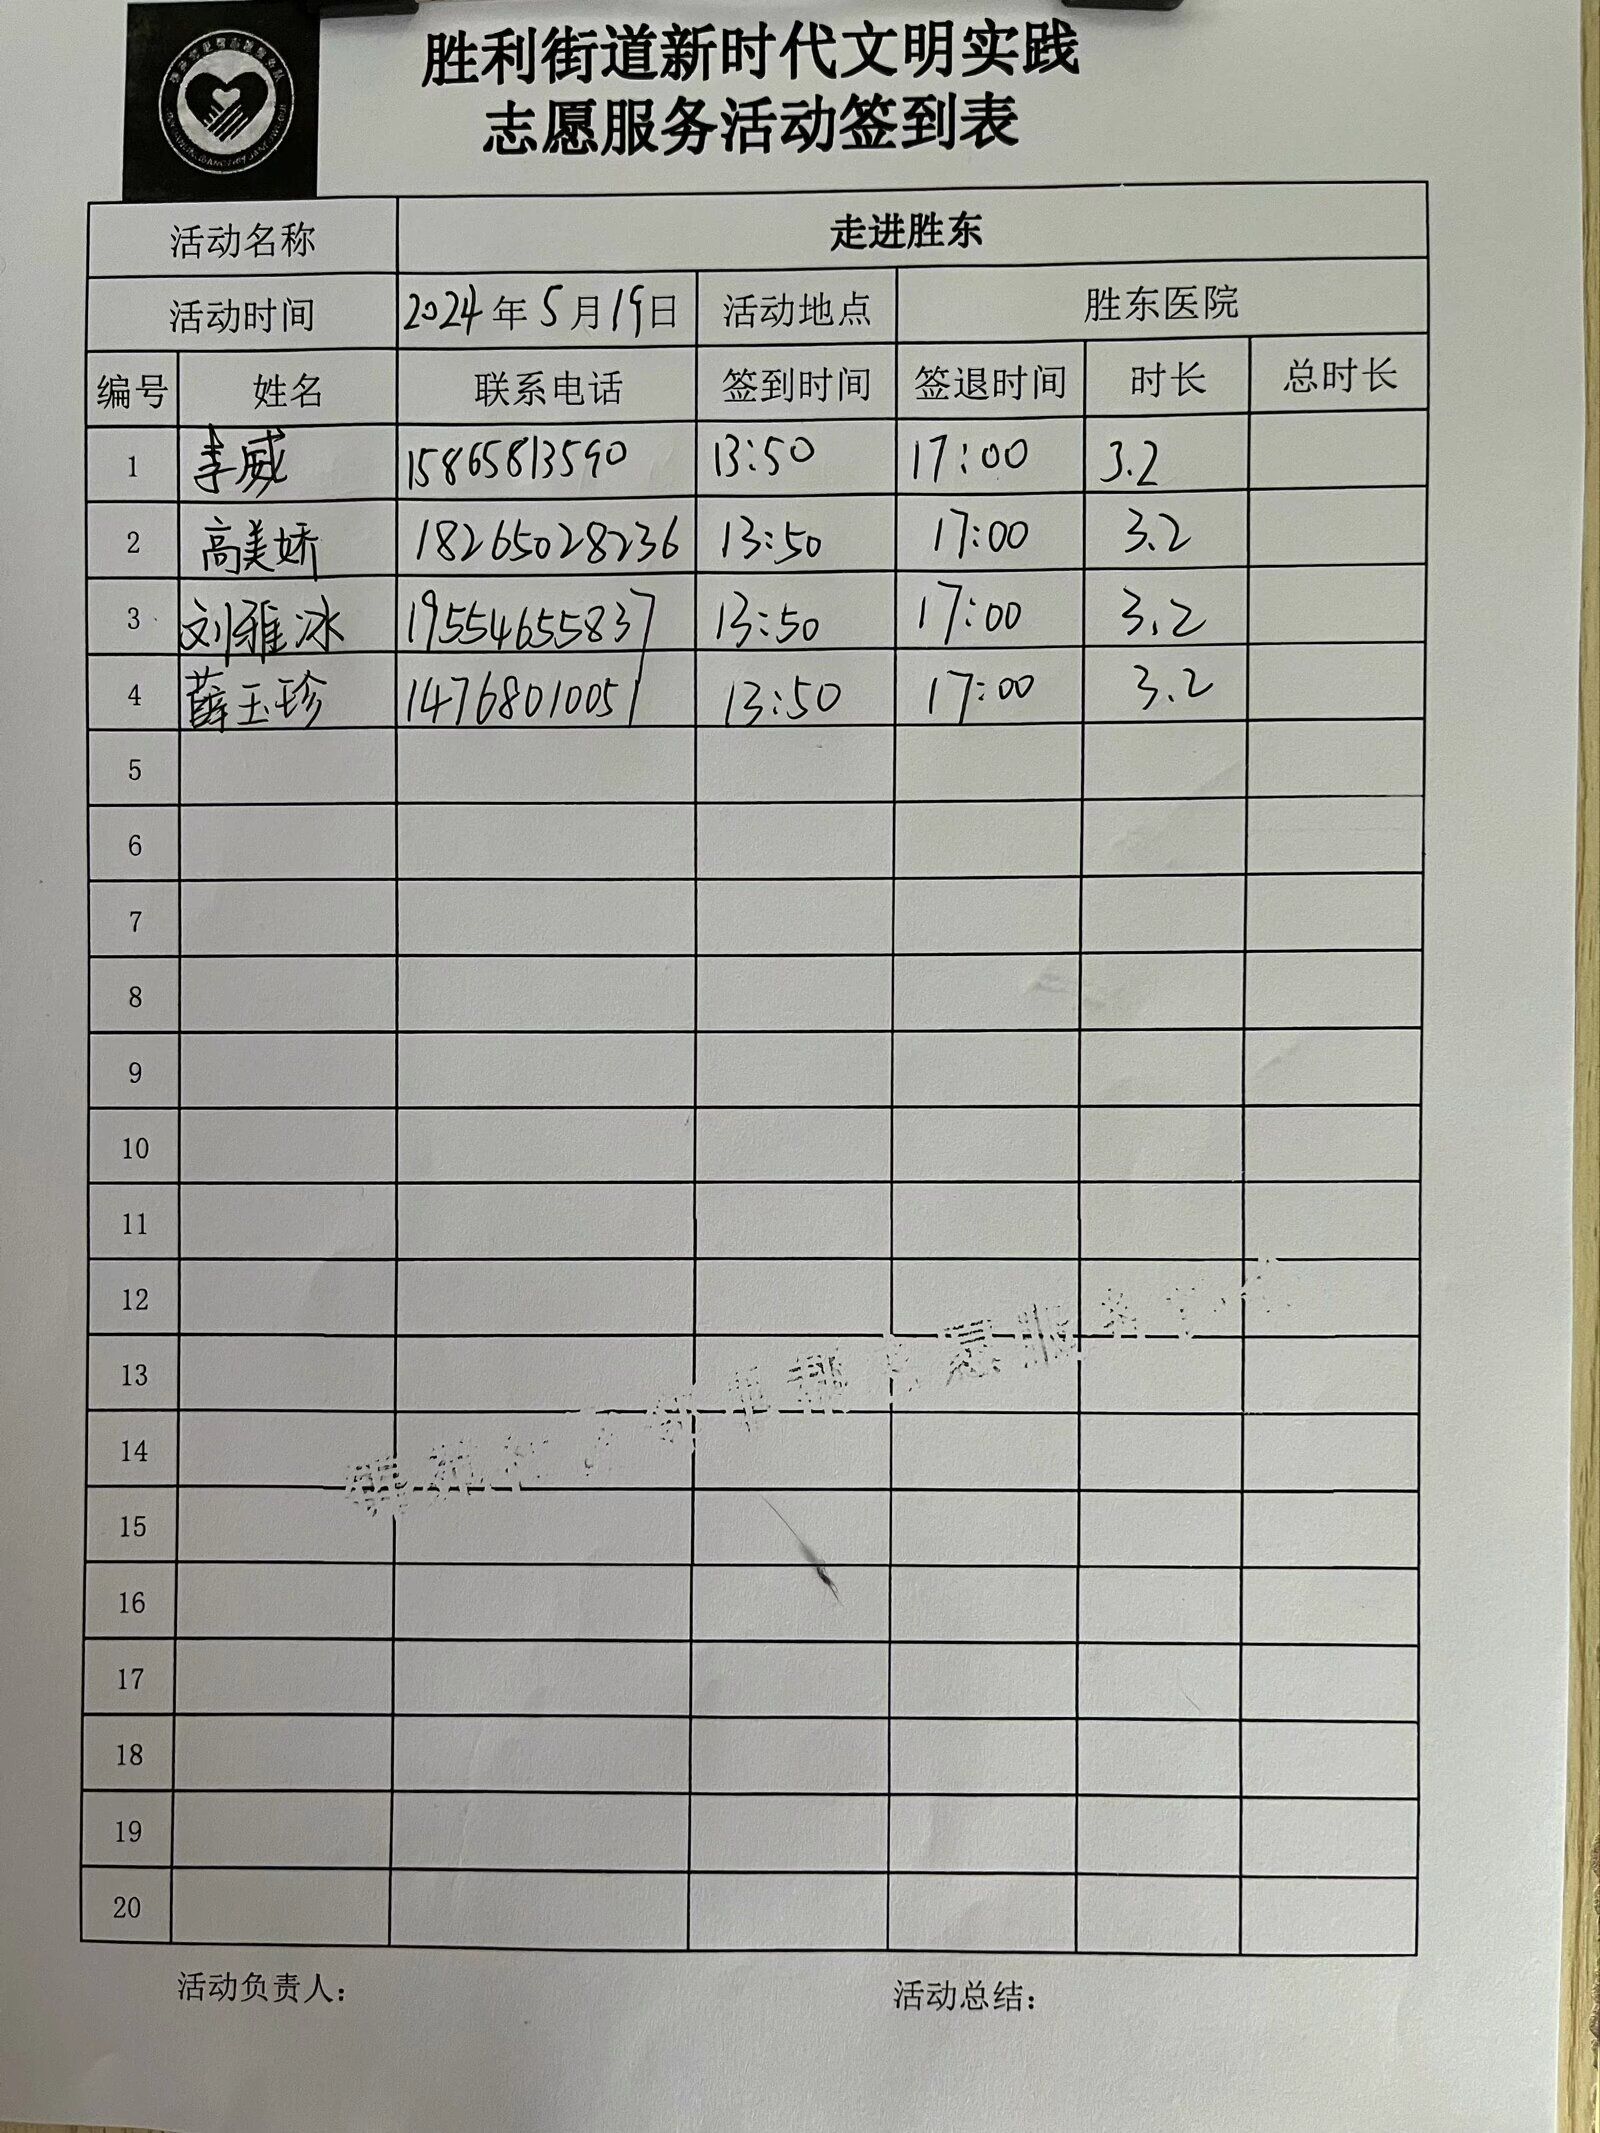 胜利街道新时代文明实践
志愿服务活动签到表
活动名称 走进胜东
活动时间 2024年5月19日 活动地点 胜东医院
编号 姓名 联系电话 签到时间 签退时间 时长 总时长
1 李威 15865813590 13:50 17:00 3.2
2 高美娇 18265028236 13:50 17:00 3.2
3 刘雅冰 19554655837 13:50 17:00 3.2
4 薛玉珍 14768010051 13:50 17:00 3.2
5
6
7
8
9
10
11
12
13
14
15
16
17
18
19
20
活动负责人： 活动总结：